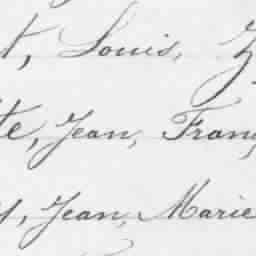 t, Louis,
te, Jean, Franç
y, Jean, Marie